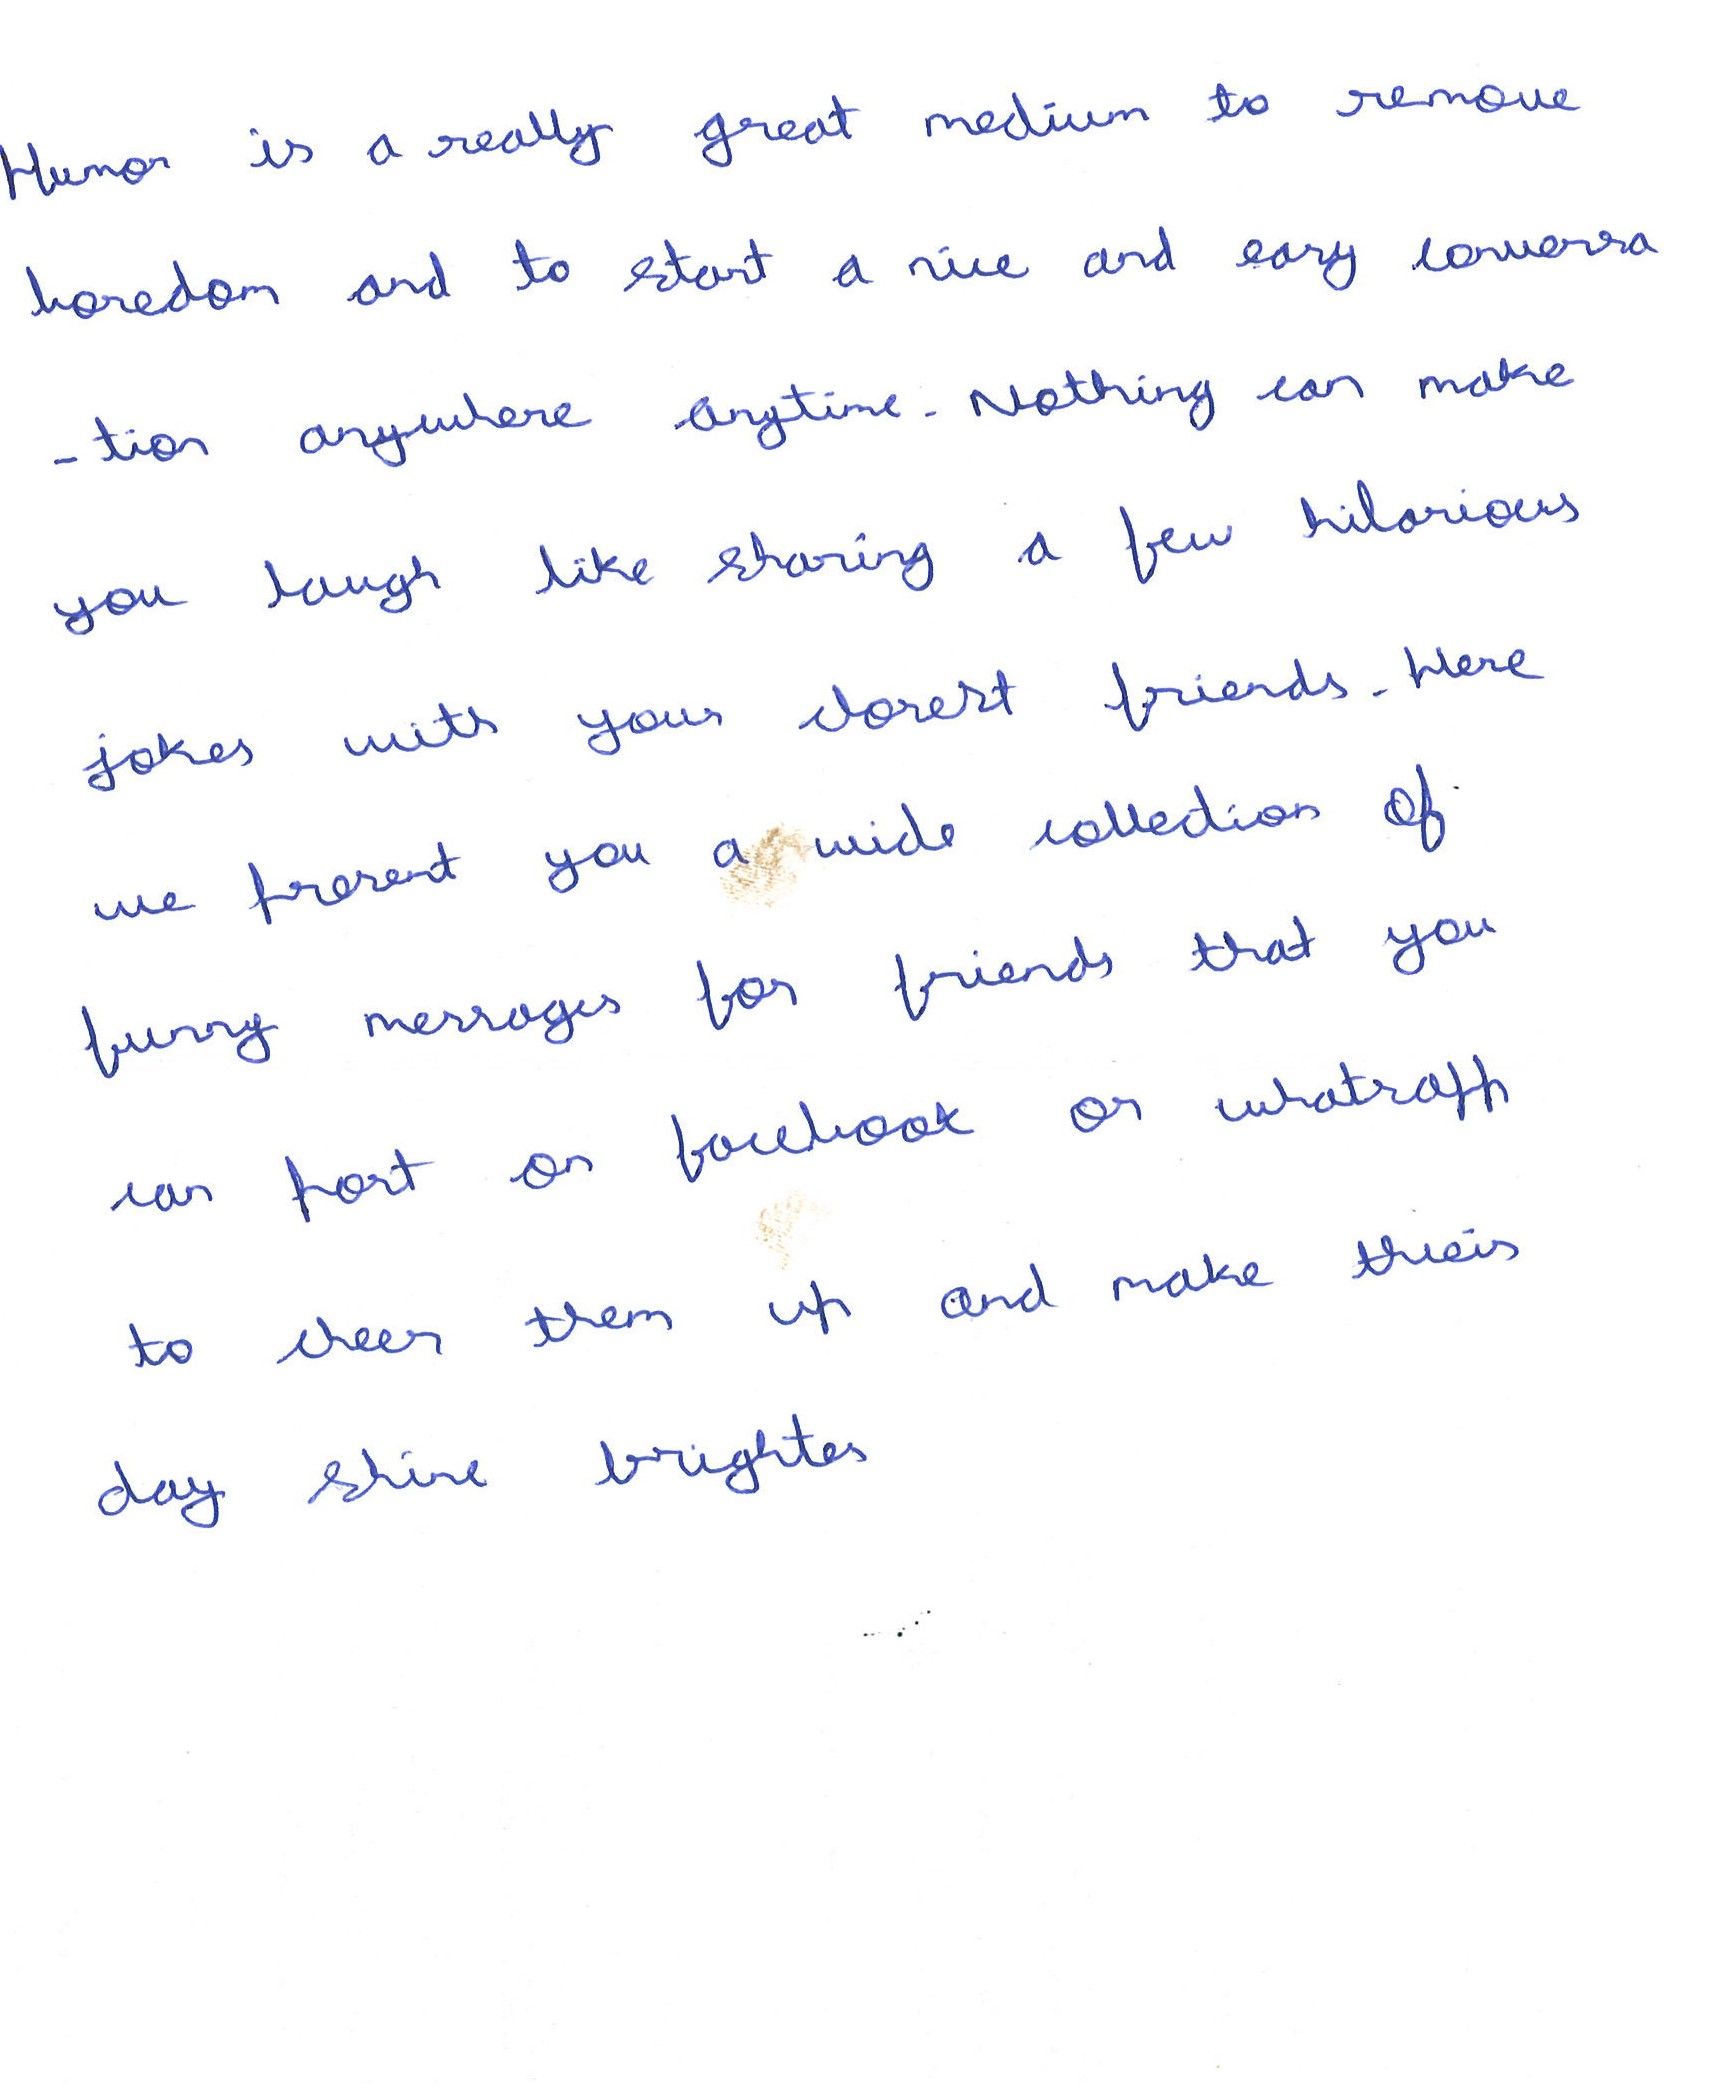 Humor is a really great medium to remove
boredom and to start a nice and easy conversa
-tion anywhere anytime. Nothing can make
you laugh like sharing a few hilarious
jokes with your closest friends. Here
we present you a wide collection of
funny messages for friends that you
can post on facebook or whatsapp
to cheer them up and make their
day shine brighter